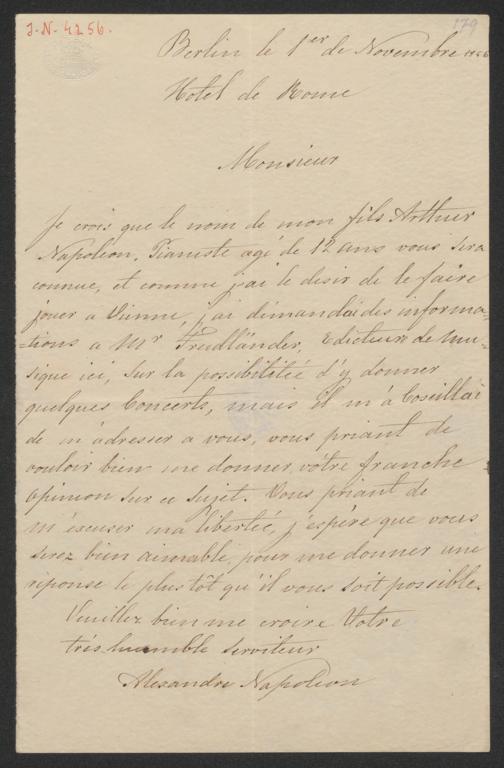 I.N. 4256.
179
Berlin le 1er de Novembre
Hotel de Rome
Monsieur
Je crois que le nom de mon fils Arthur
Napoléon, Pianiste agé de 12 ans vous sera
connue, et comme j'ai le desir de le faire
jouer a Vienne, j'ai démandai des informa=
=tions a Mr Friedländer, Edicteur de Mu-
sique ici, sur la possibilitée d'y donner
quelques Concerts, mais il m'à Coseillai
de m'adresser a vous, vous priant de
vouloir bien me donner, vôtre franche
Opinion sur ce sujet. Vous priant de
m'excuser ma libertée, j'espère que vous
serez bien aimable, pour me donner une
réponse le plus tôt qu'il vous soit possible.
Veuillez bien me croire Votre
trés humble serviteur
Alexandre Napoleon